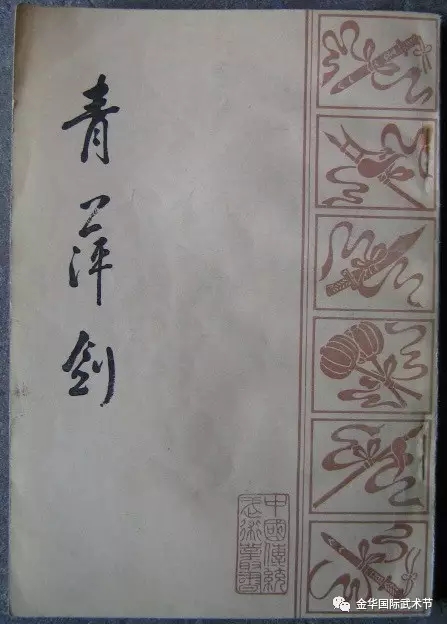 青萍剑
中國傳統
武術叢書
金华国际武术节